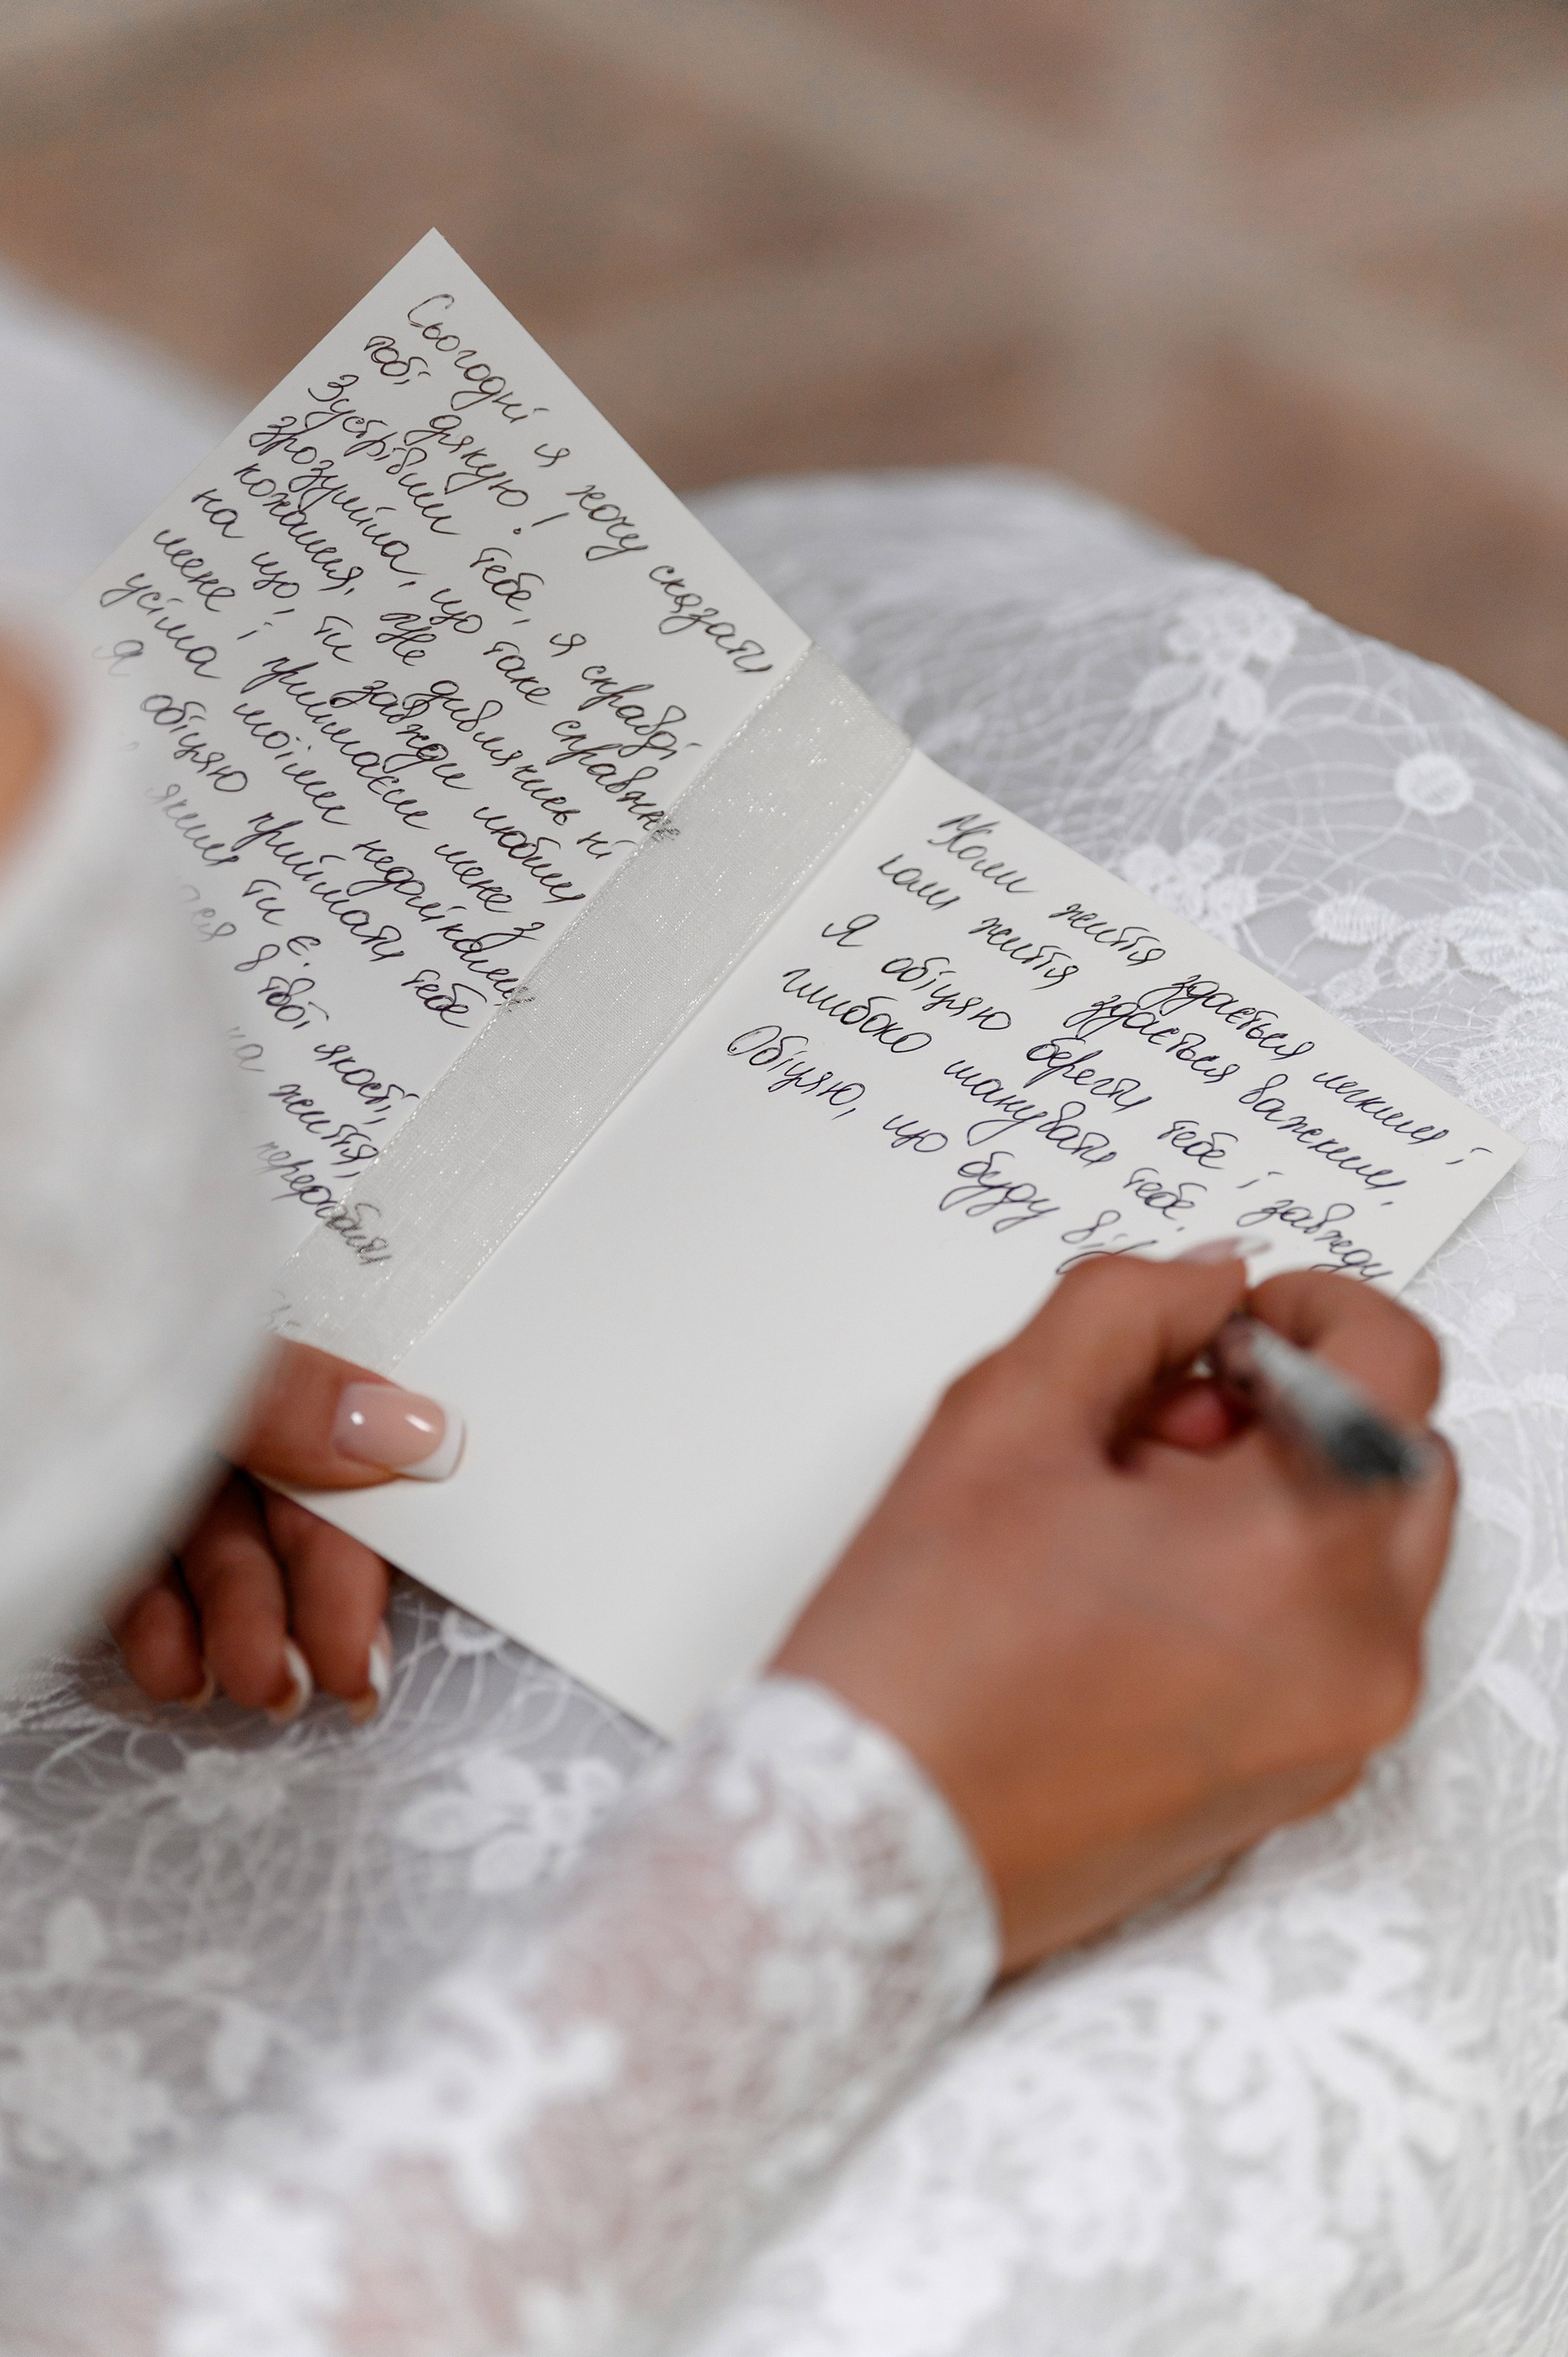 Сьогодні я хочу сказати
тобі дякую!
Зустрівши тебе, я справді
зрозуміла, що таке справжнє
кохання. Не дивлячись ні
на що, ти завжди любиш
мене і приймаєш мене з
усіма моїми недоліками.
Я обіцяю приймати тебе
яким ти є.
в твої якості,
на життя,
переробити
Коли життя здається легким і
коли життя здається важким.
Я обіцяю берегти тебе і завжди
глибоко шанувати тебе.
Обіцяю, що буду